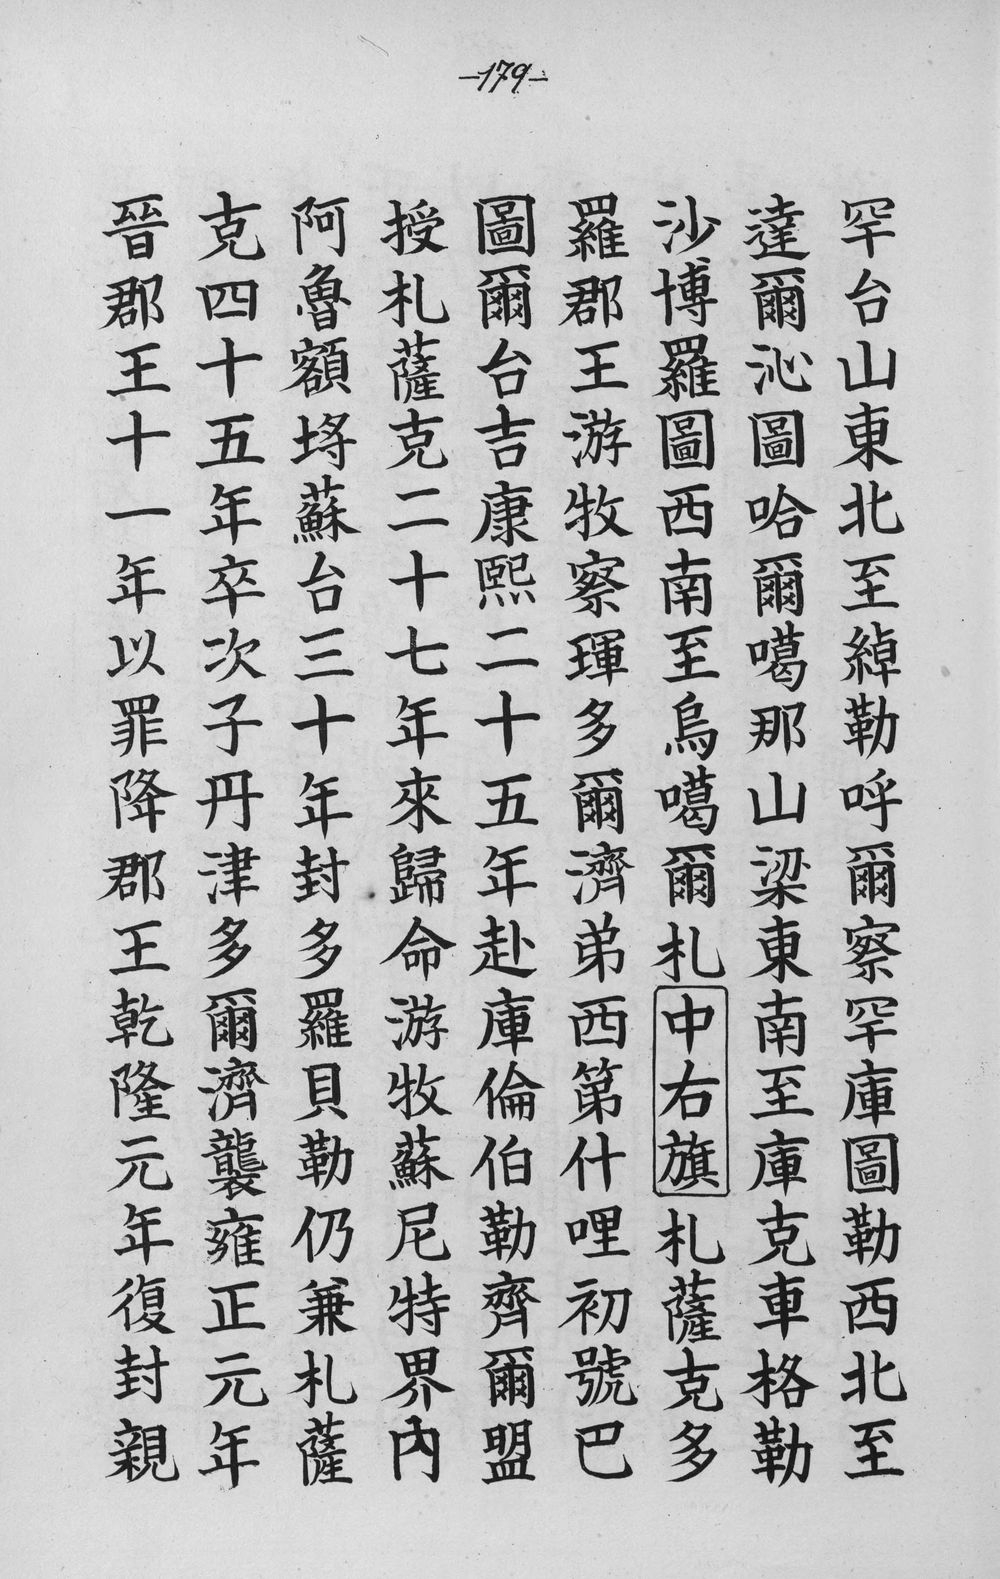 -179-
罕台山東北至綽勒呼爾察罕庫圖勒西北至
達爾沁圖哈爾噶那山梁東南至庫克車格勒
沙博羅圖西南至烏噶爾札中右旗札薩克多
羅郡王游牧察琿多爾濟弟西第什哩初號巴
圖爾台吉康熙二十五年赴庫倫伯勒齊爾盟
授札薩克二十七年來歸命游牧蘇尼特界內
阿魯額埓蘇台三十年封多羅貝勒仍兼札薩
克四十五年卒次子丹津多爾濟襲雍正元年
晉郡王十一年以罪降郡王乾隆元年復封親